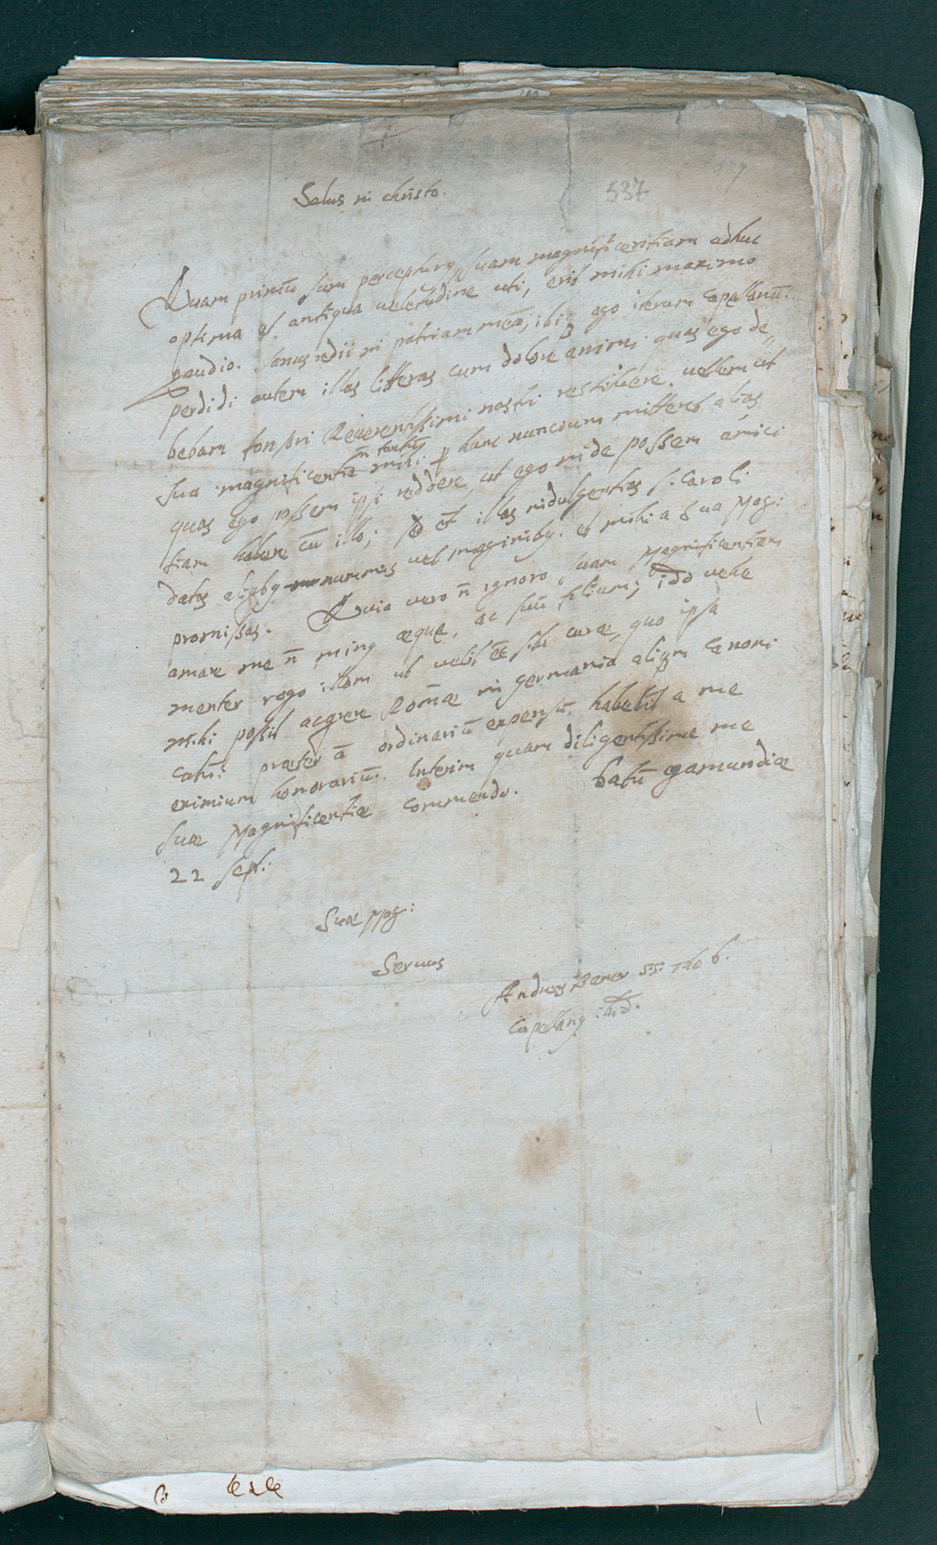 537
Salus in christo.
Quam primū sum percepturus suam magnificentiam adhuc
optima et antiqua valetudine uti, erit mihi maximo
gaudio. Sanus redii in patriam meā, ibiq; ago iterum capellanū.
perdidi autem illas litteras cum dolore animi quas ego de„
bebam Reverentissimi nostri restituere. vellem ut
sua magnificentia mihi p hunc nuncium mitteret alias
quas ego possem ipsi reddere, ut ego inde possem amici
tiam habere cū illo; sed et illas indulgentias S. Caroli
datas aliqbg nummis vel imaginibg. et mihi a sua Mag:
promissas. Quia vero n̄ ignoro, suam Magnificentiam
amare me n̄ ming æque, ac suū filium; ideo vehe
menter rogo illam ut velit eē sibi curæ, quo ipsa
mihi possit acqrere Romæ in germania aliqm canoni
catū: præter ā ordinariū expensū habebit a me
eximium honorariū. Interim quam diligentissime me
suæ Magnificentiæ commendo. Datū gamundiæ
22 Sept:
Suæ Mag:
Servus
Andreas SS: The b.
Capellang ibid.